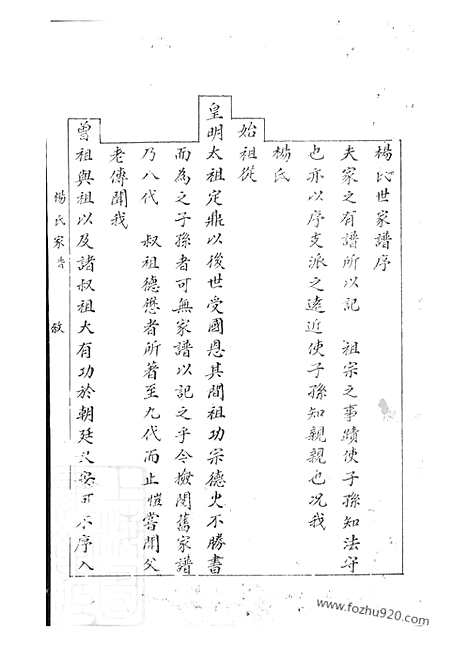 楊氏世家譜序
夫家之有譜所以記 祖宗之事蹟使子孫知法守
也亦以序支派之遠近使子孫知親親也况我
楊氏
始祖從
皇明太祖定鼎以後世受國恩其間祖功宗德火不勝書
而為之子孫者可無家譜以記之乎今撿閱舊家譜
乃八代 叔祖德懋者所著至九代而止愷嘗聞父
老傳聞我
曾祖與祖以及諸叔祖大有功於朝廷又安可不序入
楊氏家譜 敘
www.fozhu920.com